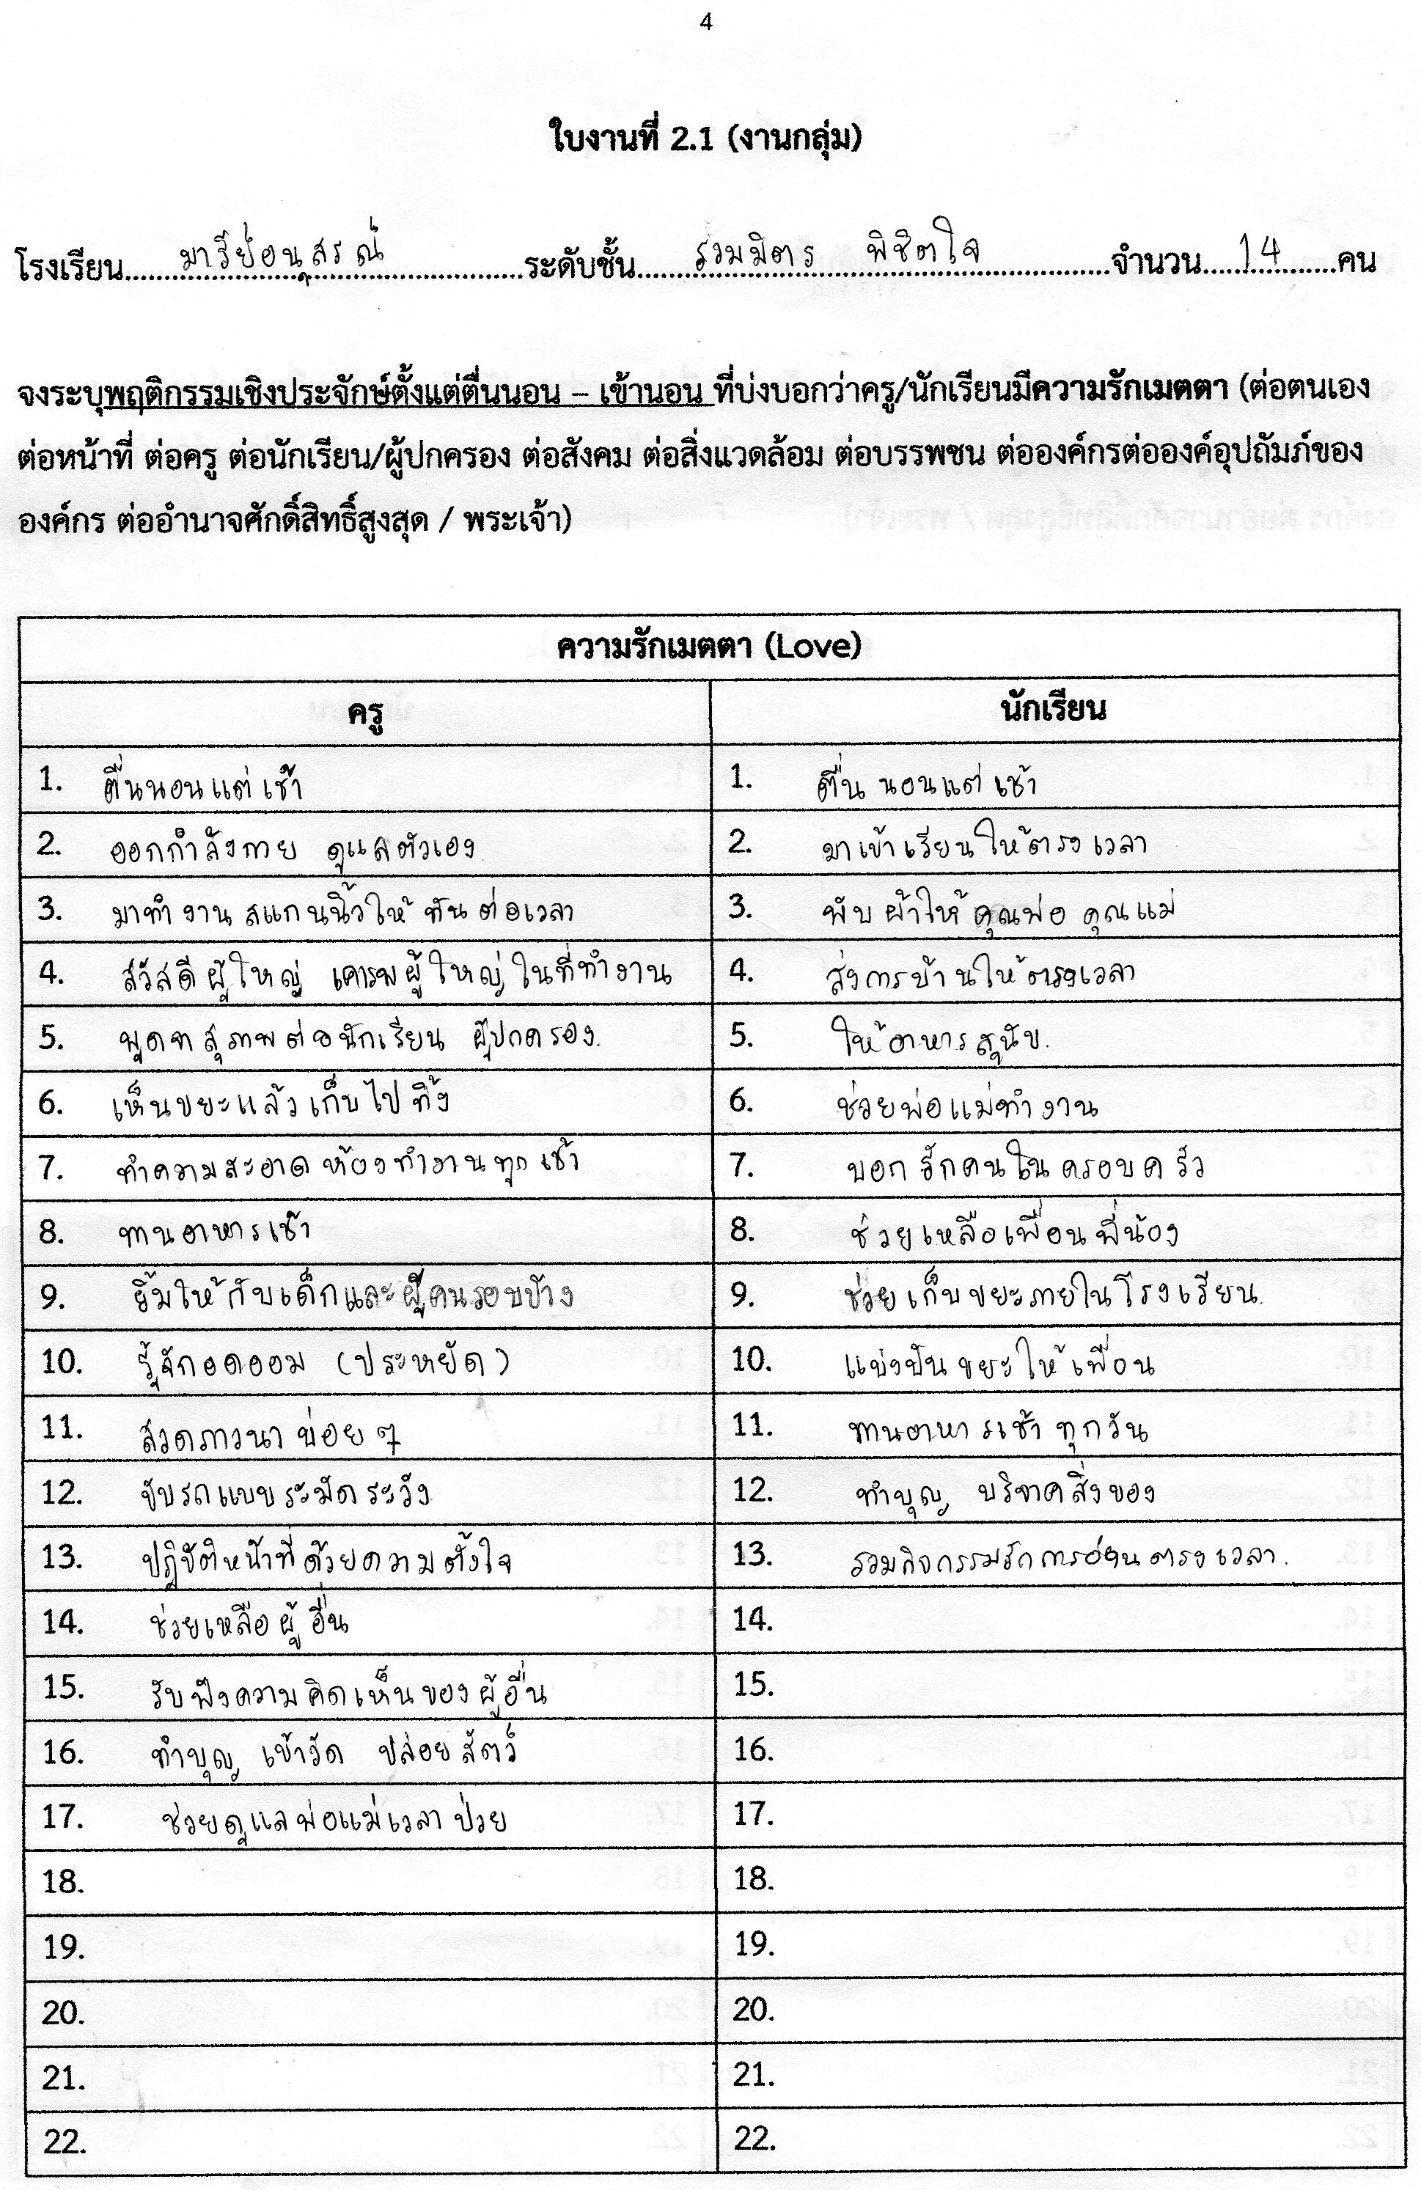 4
ใบงานที่ 2.1 (งานกลุ่ม)
โรงเรียน มารีย์อนุสรณ์ ระดับชั้น ร่วมมิตร พิชิตใจ จำนวน 14 คน
จงระบุพฤติกรรมเชิงประจักษ์ตั้งแต่ตื่นนอน – เข้านอน ที่บ่งบอกว่าครู/นักเรียนมีความรักเมตตา (ต่อตนเอง
ต่อหน้าที่ ต่อครู ต่อนักเรียน/ผู้ปกครอง ต่อสังคม ต่อสิ่งแวดล้อม ต่อบรรพชน ต่อองค์กรต่อองค์อุปถัมภ์ของ
องค์กร ต่ออำนาจศักดิ์สิทธิ์สูงสุด / พระเจ้า)
ความรักเมตตา (Love)
ครู นักเรียน
1. ตื่นนอนแต่เช้า 1. ตื่นนอนแต่เช้า
2. ออกกำลังกาย ดูแลตัวเอง 2. มาเข้าเรียนให้ตรงเวลา
3. มาทำงาน สแกนนิ้วให้ทันต่อเวลา 3. พับผ้าให้คุณพ่อ คุณแม่
4. สวัสดีผู้ใหญ่ เคารพผู้ใหญ่ในที่ทำงาน 4. ส่งการบ้านให้ตรงเวลา
5. พูดจาสุภาพต่อนักเรียน ผู้ปกครอง. 5. ให้อาหารสุนัข.
6. เห็นขยะแล้วเก็บไปทิ้ง 6. ช่วยพ่อแม่ทำงาน
7. ทำความสะอาดห้องทำงานทุกเช้า 7. บอกรักคนในครอบครัว
8. ทานอาหารเช้า 8. ช่วยเหลือเพื่อนพี่น้อง
9. ยิ้มให้กับเด็กและผู้คนรอบข้าง 9. ช่วยเก็บขยะภายในโรงเรียน.
10. รู้จักอดออม (ประหยัด) 10. แบ่งปันขยะให้เพื่อน
11. สวดภาวนาบ่อยๆ 11. ทานอาหารเช้าทุกวัน
12. ขับรถแบบระมัดระวัง 12. ทำบุญ บริจาคสิ่งของ
13. ปฏิบัติหน้าที่ด้วยความตั้งใจ 13. รวมกิจกรรมรักการอ่านตรงเวลา.
14. ช่วยเหลือผู้อื่น 14.
15. รับฟังความคิดเห็นของผู้อื่น 15.
16. ทำบุญ เข้าวัด ปล่อยสัตว์ 16.
17. ช่วยดูแลพ่อแม่เวลาป่วย 17.
18. 18.
19. 19.
20. 20.
21. 21.
22. 22.